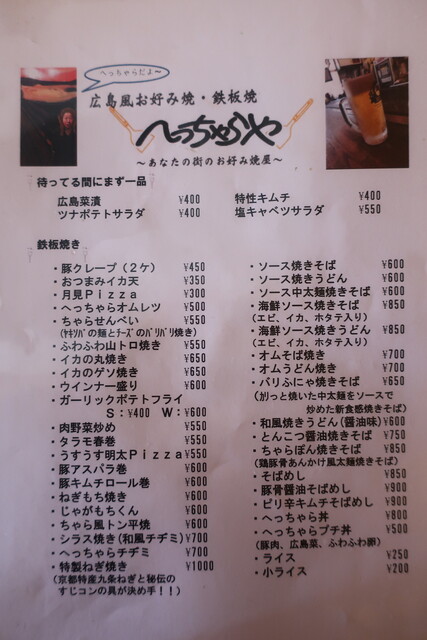 へっちゃらだよ～
広島風お好み焼・鉄板焼
へっちゃらや
～あなたの街のお好み焼屋～
待ってる間にまず一品
広島菜漬 ¥400
ツナポテトサラダ ¥400
特性キムチ ¥400
塩キャベツサラダ ¥550
鉄板焼き
・豚クレープ（２ケ） ¥450
・おつまみイカ天 ¥350
・月見Ｐｉｚｚａ ¥300
・へっちゃらオムレツ ¥500
・ちゃらせんべい ¥550
(ﾔｷｿﾊﾞの麺とﾁｰｽﾞのﾊﾟﾘﾊﾟﾘ焼き)
・ふわふわ山トロ焼き ¥550
・イカの丸焼き ¥650
・イカのゲソ焼き ¥650
・ウインナー盛り ¥600
・ガーリックポテトフライ
Ｓ：¥400 Ｗ：¥600
・肉野菜炒め ¥550
・タラモ春巻 ¥550
・うすうす明太Ｐｉｚｚａ ¥550
・豚アスパラ巻 ¥600
・豚キムチロール巻 ¥600
・ねぎもち焼き ¥600
・じゃがもちくん ¥600
・ちゃら風トン平焼 ¥600
・シラス焼き(和風チヂミ) ¥700
・へっちゃらチヂミ ¥700
・特製ねぎ焼き ¥1000
(京都特産九条ねぎと秘伝の
すじコンの具が決め手！！)
・ソース焼きそば ¥600
・ソース焼きうどん ¥600
・ソース中太麺焼きそば ¥600
・海鮮ソース焼きそば ¥850
(エビ、イカ、ホタテ入り)
・海鮮ソース焼きうどん ¥850
(エビ、イカ、ホタテ入り)
・オムそば焼き ¥700
・オムうどん焼き ¥700
・バリふにゃ焼きそば ¥650
(ｶﾘっと焼いた中太麺をソースで
炒めた新食感焼きそば)
・和風焼きうどん(醤油味) ¥600
・とんこつ醤油焼きそば ¥750
・ちゃらぽん焼きそば ¥850
(鶏豚骨あんかけ風太麺焼きそば)
・そばめし ¥850
・豚骨醤油そばめし ¥900
・ピリ辛キムチそばめし ¥900
・へっちゃら丼 ¥800
・へっちゃらプチ丼 ¥500
(豚肉、広島菜、ふわふわ卵)
・ライス ¥250
・小ライス ¥200